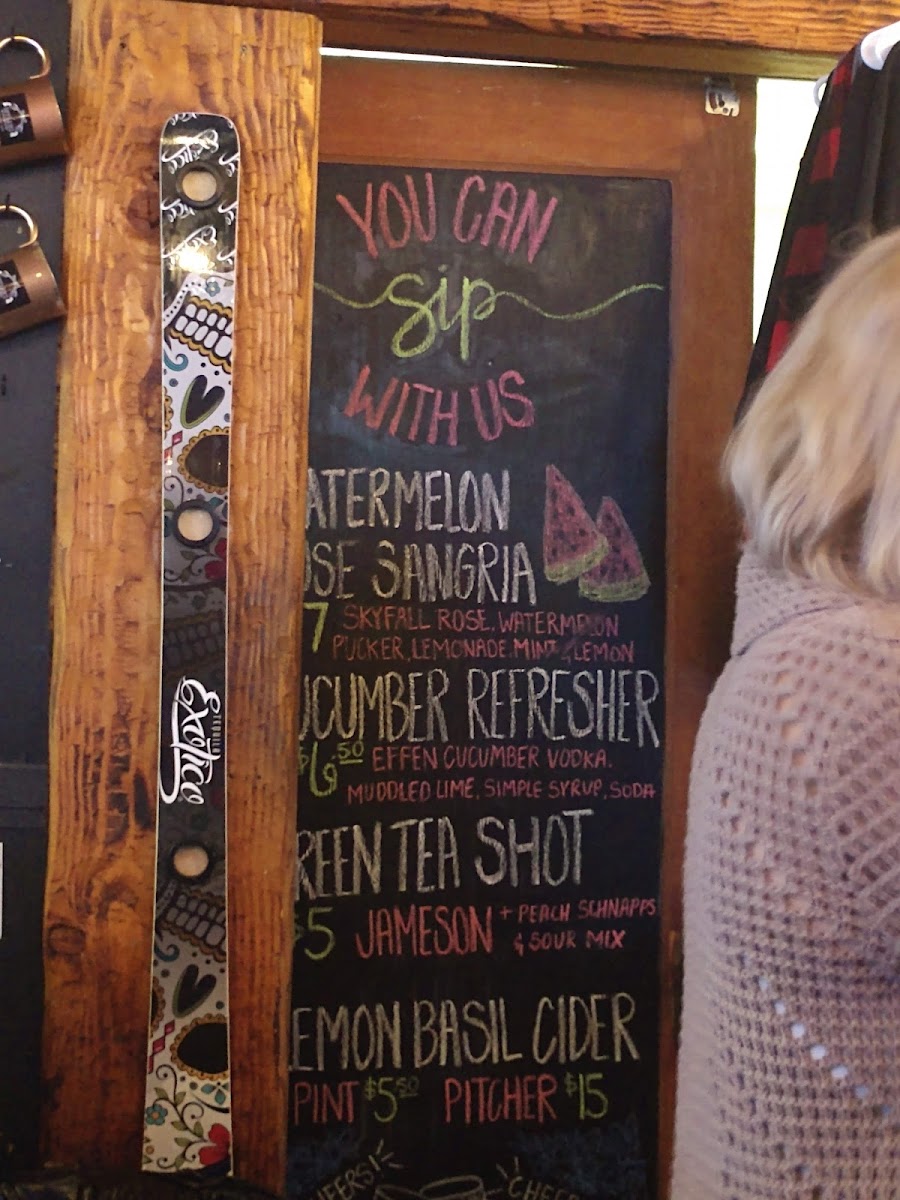 YOU CAN
sip
WITH US
ATERMELON
OSE SANGRIA
7 SKYFALL ROSE, WATERMELON
PUCKER, LEMONADE, MINT & LEMON
UCUMBER REFRESHER
$6.50 EFFEN CUCUMBER VODKA,
MUDDLED LIME, SIMPLE SYRUP, SODA
REEN TEA SHOT
$5 JAMESON + PEACH SCHNAPPS
& SOUR MIX
LEMON BASIL CIDER
PINT $5.50 PITCHER $15
HEERS!
CHEER
Exotico
TEQUILA
Exotico